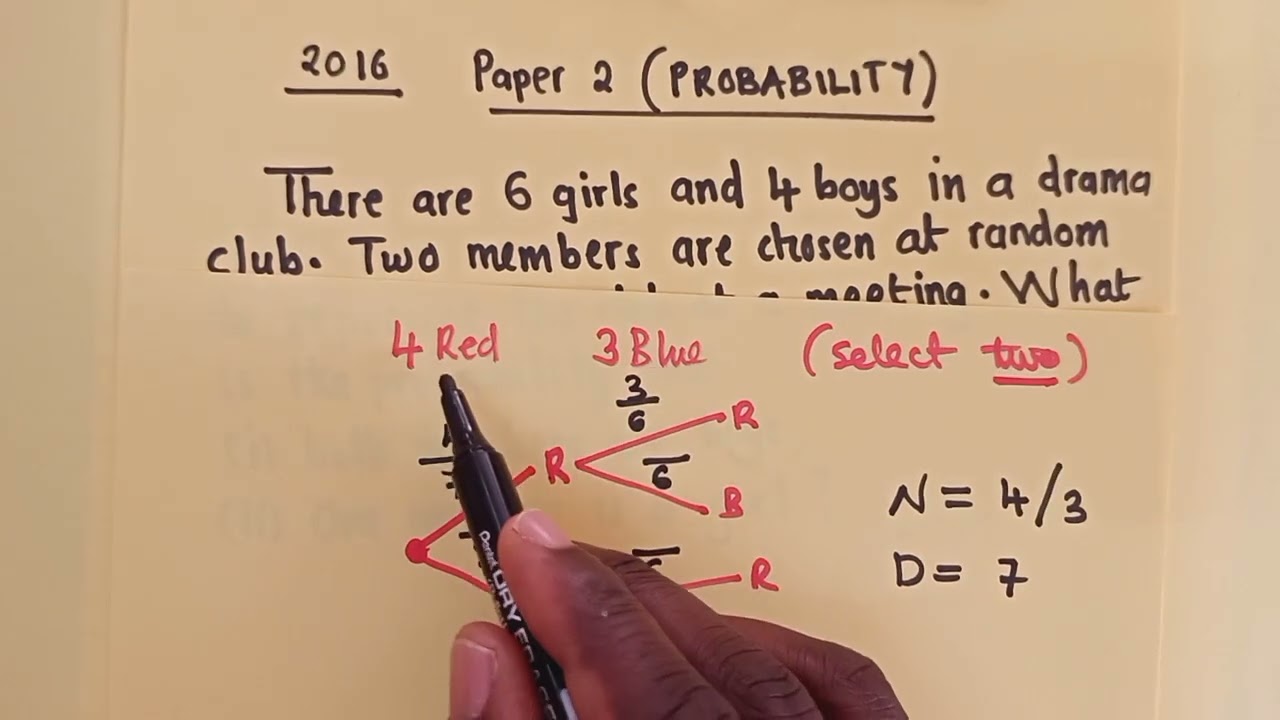 2016 Paper 2 (PROBABILITY)
There are 6 girls and 4 boys in a drama
club. Two members are chosen at random
a meeting. What
4 Red 3 Blue (select two)
3/6 R
R /6
B
N = 4/3
D = 7
R
Pentel